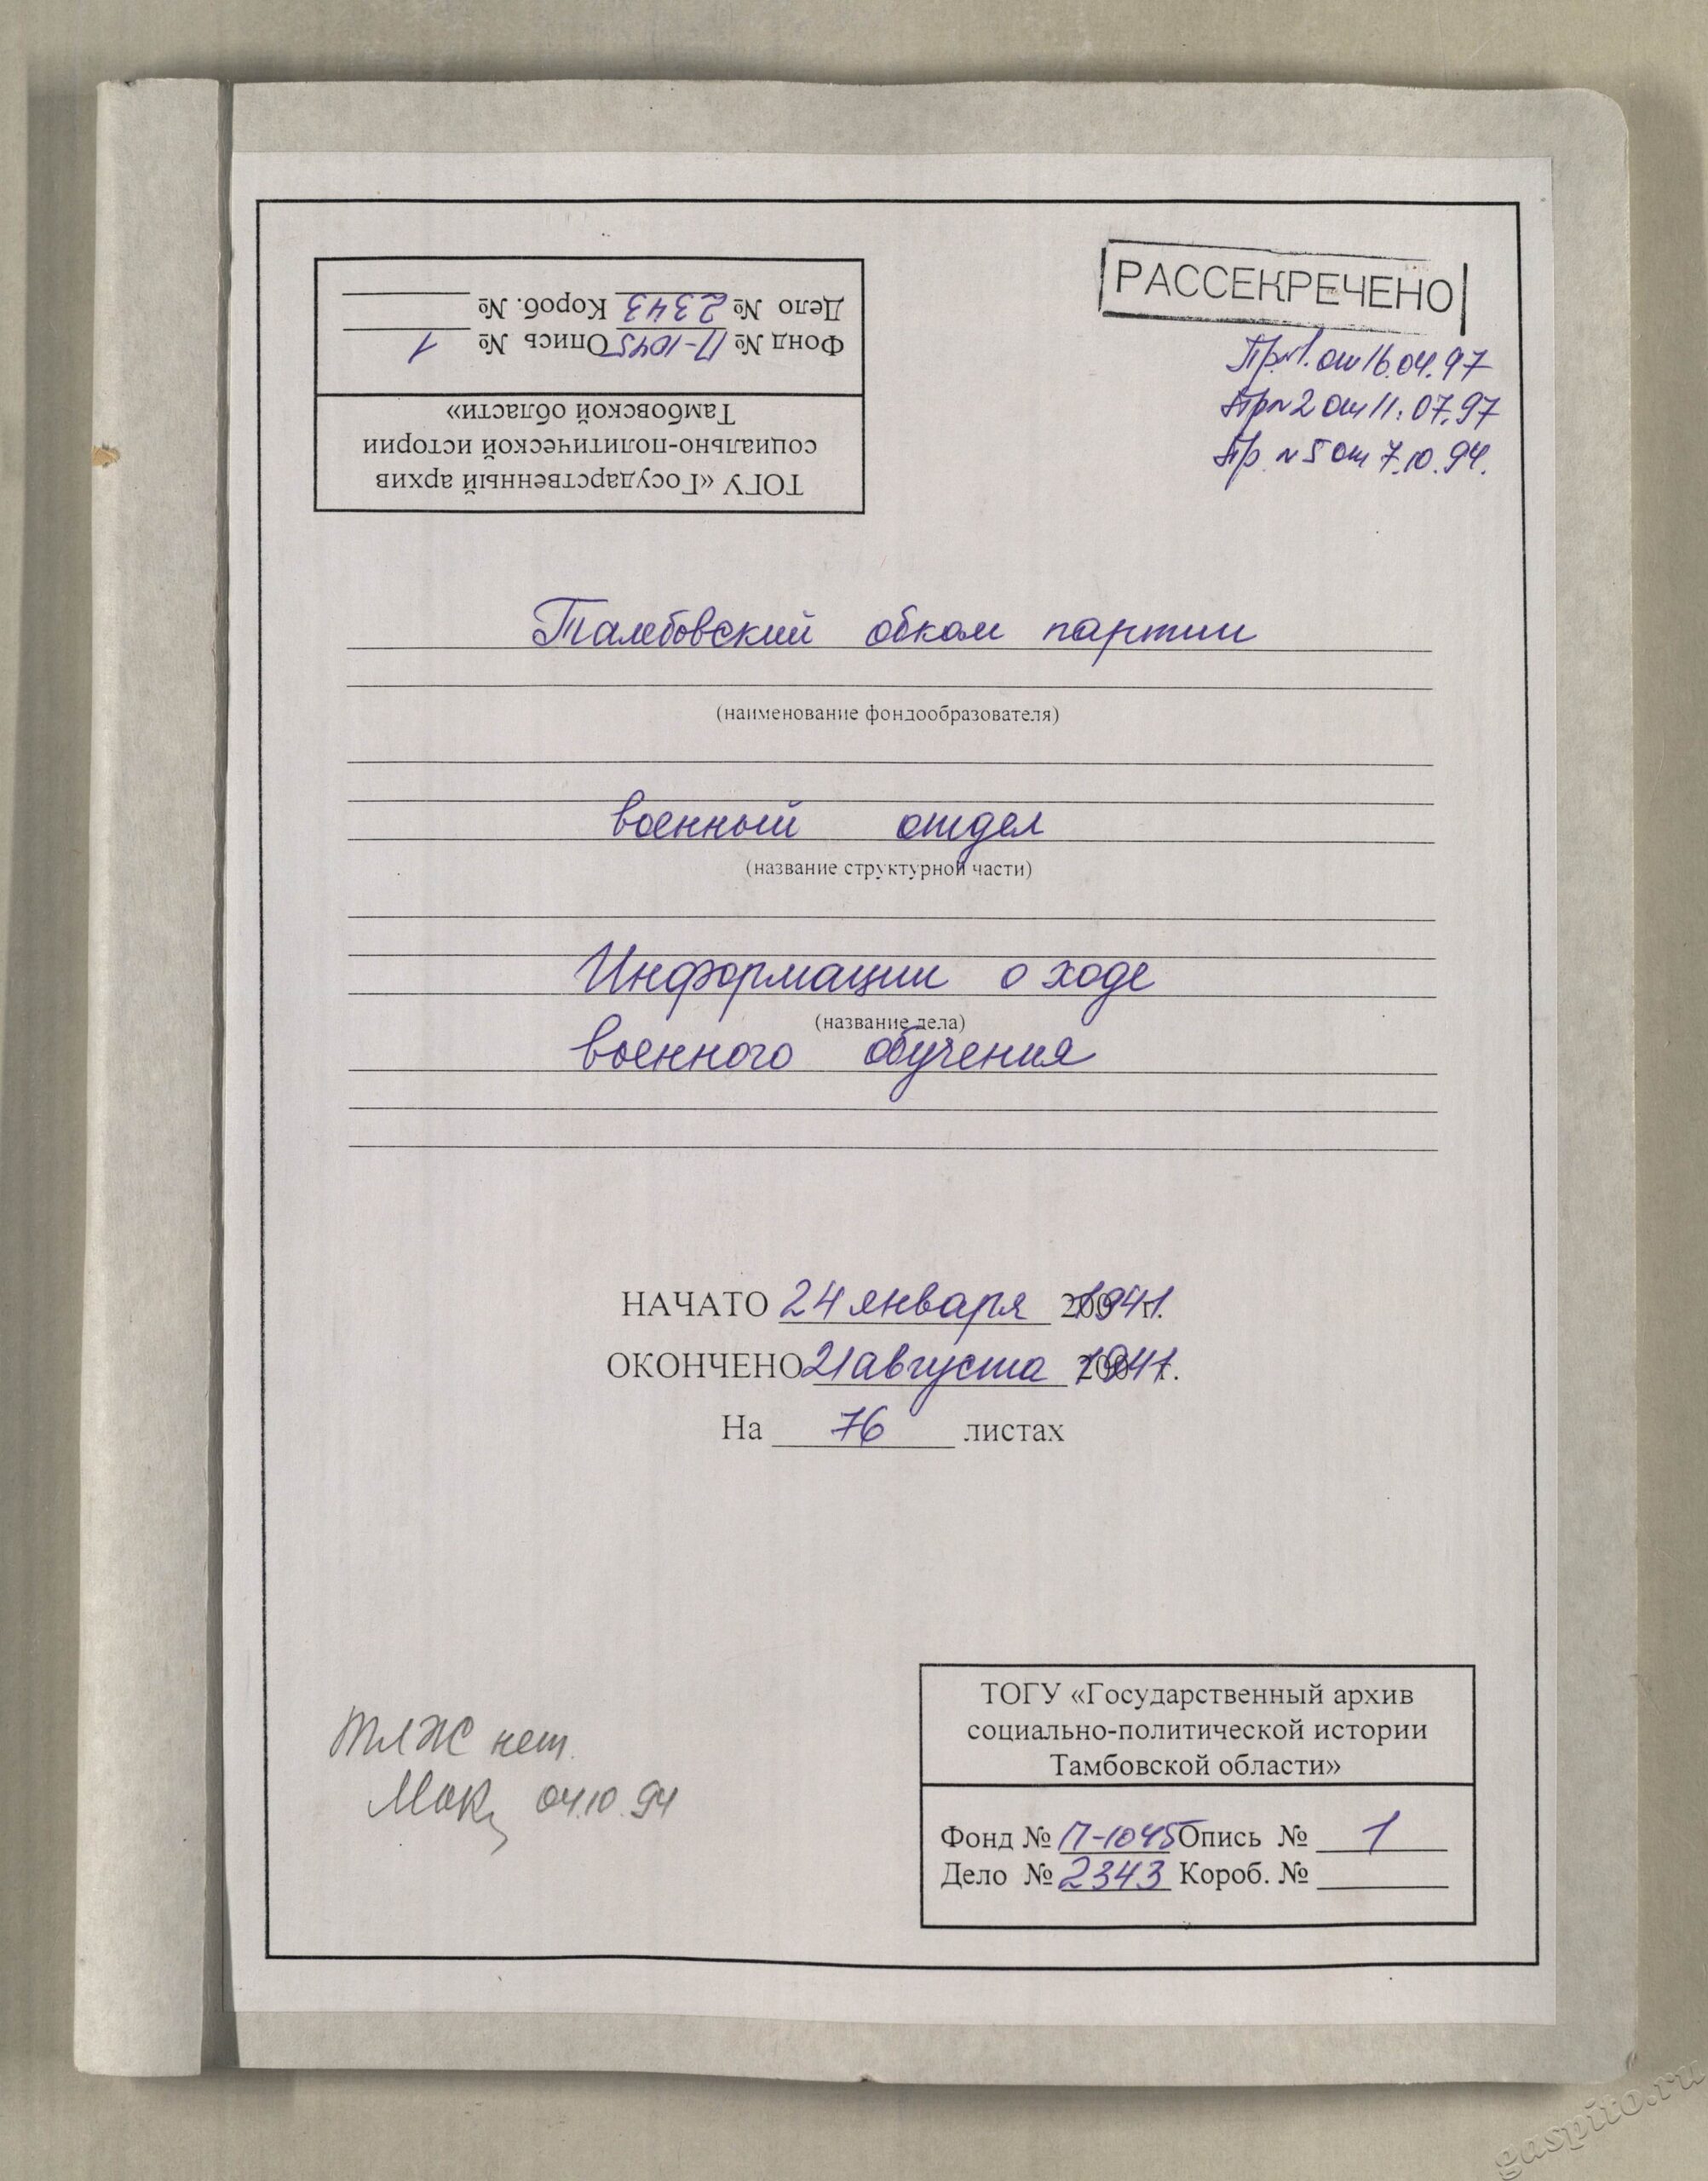 Дело № 2343 Короб. №
Фонд № П-1045 Опись № 1
ТОГУ «Государственный архив
социально-политической истории
Тамбовской области»
РАССЕКРЕЧЕНО
Пр.№1. от 16.04.97
Пр№2 от 11.07.97
Пр. №5 от 7.10.94.
Тамбовский обком партии
(наименование фондообразователя)
военный отдел
(название структурной части)
Информации о ходе
(название дела)
военного обучения
НАЧАТО 24 января 1941г.
ОКОНЧЕНО 21 августа 1941г.
На 76 листах
нет.
04.10.94
ТОГУ «Государственный архив
социально-политической истории
Тамбовской области»
Фонд № П-1045 Опись № 1
Дело № 2343 Короб. №
gaspito.ru